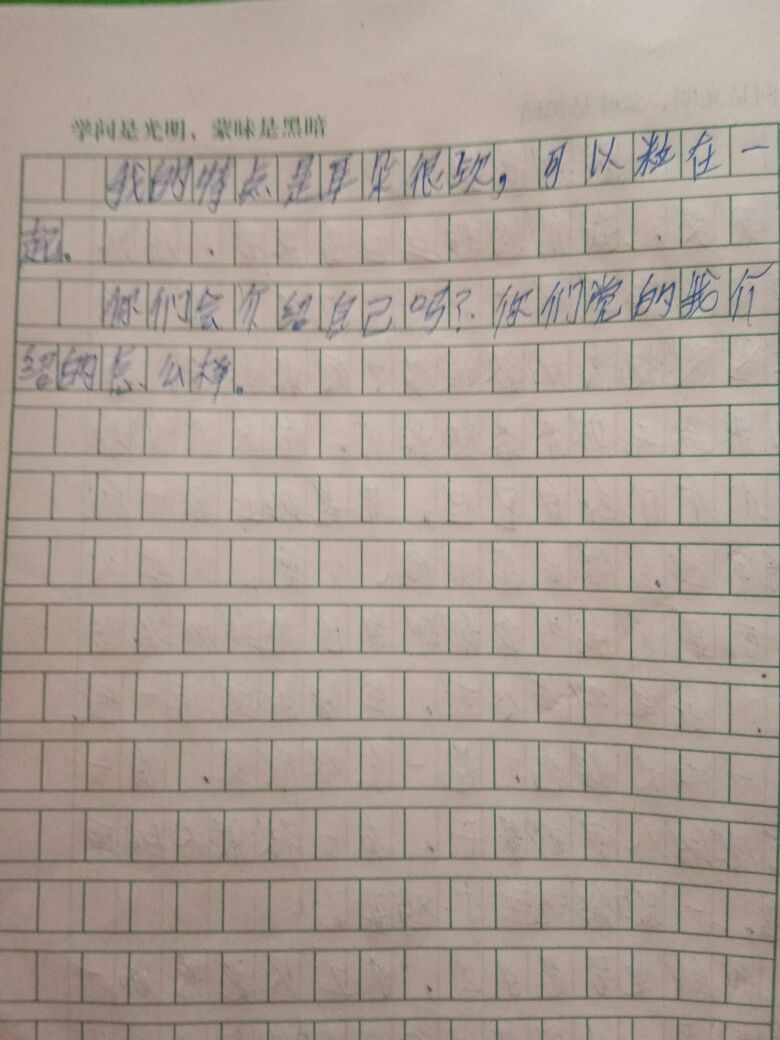 学问是光明，蒙昧是黑暗
我的特点是耳朵很软，可以粒在一
起。
你们会介绍自己吗？你们觉的我介
绍的怎么样。